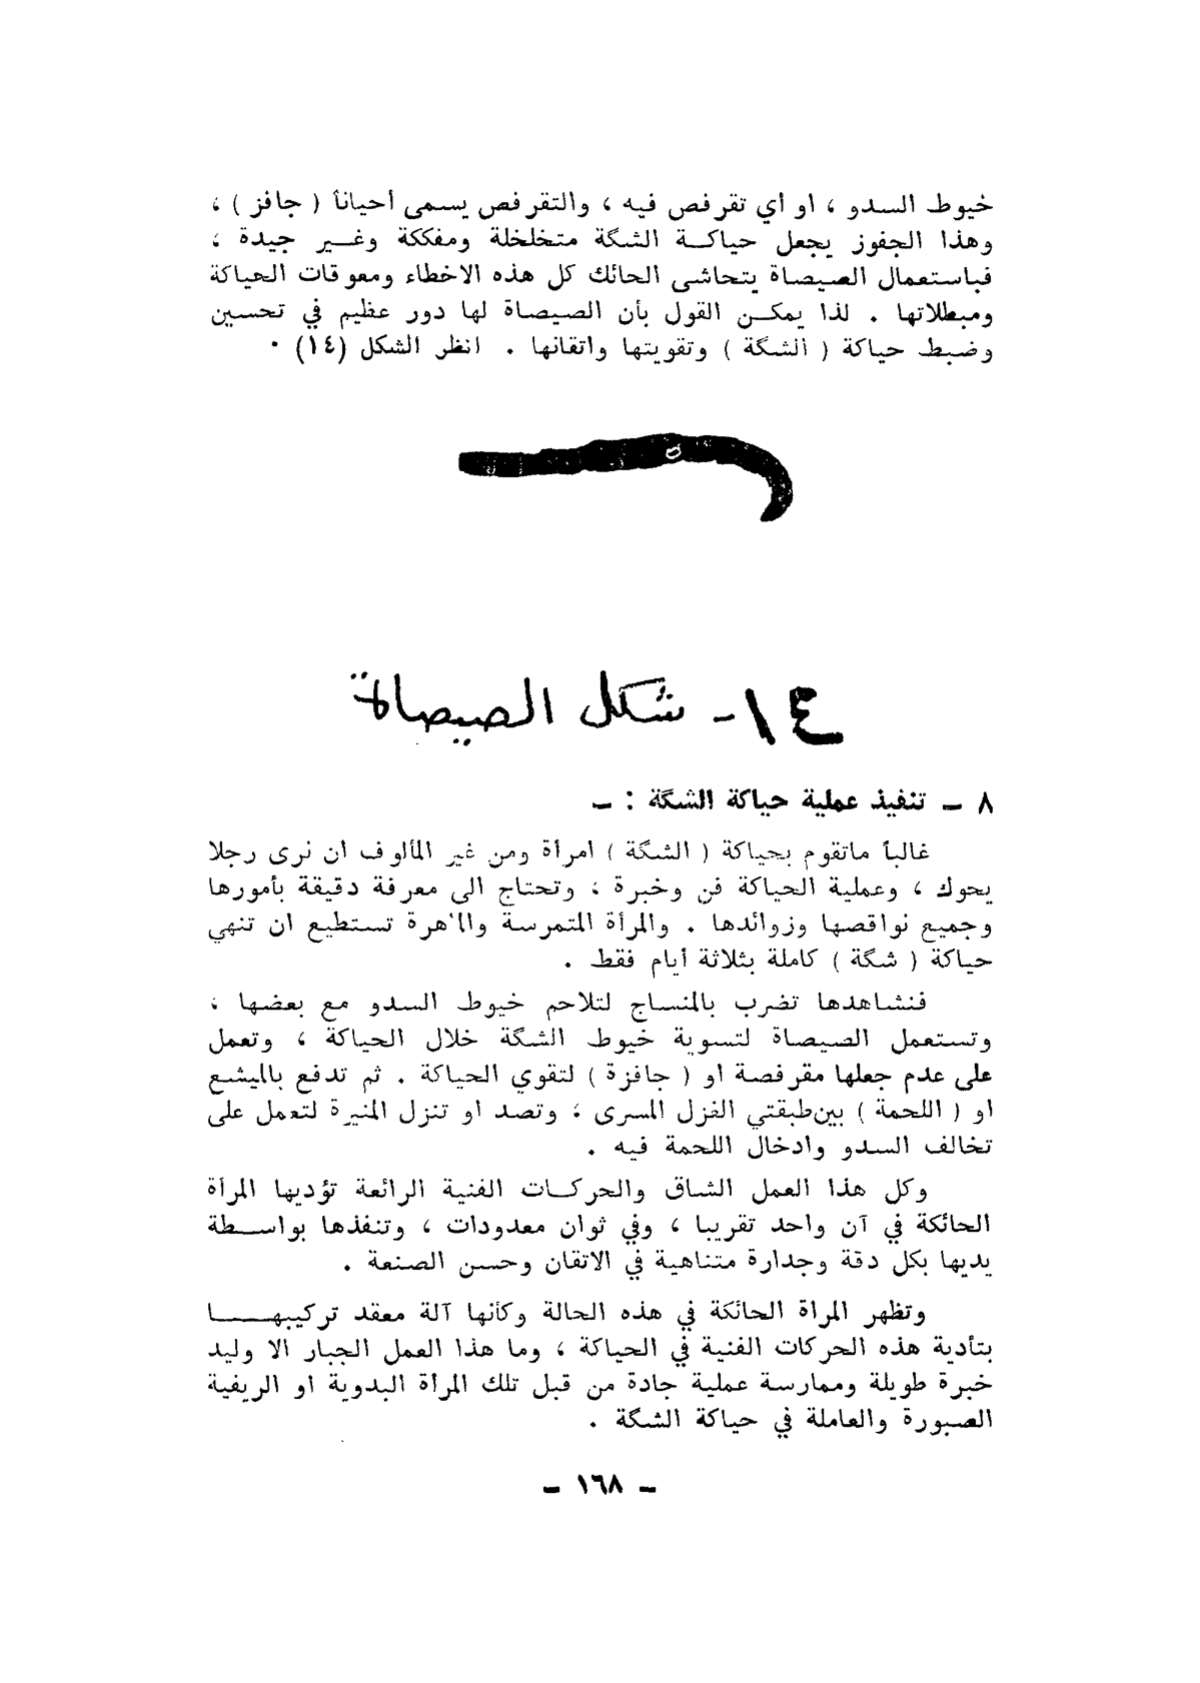 خيوط السدو ، او أي تقرفص فيه ، والتقرفص يسمى أحياناً ( جافز ) ،
وهذا الجفوز يجعل حياكة الشگة متخلخلة ومفككة وغير جيدة ،
فباستعمال الصيصاة يتحاشى الحائك كل هذه الاخطاء ومعوقات الحياكة
ومبطلاتها . لذا يمكن القول بأن الصيصاة لها دور عظيم في تحسين
وضبط حياكة ( الشگة ) وتقويتها واتقانها . انظر الشكل (١٤) .
١٤- شكل الصيصاة
٨ - تنفيذ عملية حياكة الشگة : -
غالباً ماتقوم بحياكة ( الشگة ) امرأة ومن غير المألوف ان نرى رجلا
يحوك ، وعملية الحياكة فن وخبرة ، وتحتاج الى معرفة دقيقة بأمورها
وجميع نواقصها وزوائدها . والمرأة المتمرسة والماهرة تستطيع ان تنهي
حياكة ( شگة ) كاملة بثلاثة أيام فقط .
فنشاهدها تضرب بالمنساج لتلاحم خيوط السدو مع بعضها ،
وتستعمل الصيصاة لتسوية خيوط الشگة خلال الحياكة ، وتعمل
على عدم جعلها مقرفصة او ( جافزة ) لتقوي الحياكة . ثم تدفع بالميشع
او ( اللحمة ) بين طبقتي الغزل المسرى ، وتصد او تنزل المنيرة لتعمل على
تخالف السدو وادخال اللحمة فيه .
وكل هذا العمل الشاق والحركات الفنية الرائعة تؤديها المرأة
الحائكة في آن واحد تقريبا ، وفي ثوان معدودات ، وتنفذها بواسطة
يديها بكل دقة وجدارة متناهية في الاتقان وحسن الصنعة .
وتظهر المرأة الحائكة في هذه الحالة وكأنها آلة معقد تركيبها
بتأدية هذه الحركات الفنية في الحياكة ، وما هذا العمل الجبار الا وليد
خبرة طويلة وممارسة عملية جادة من قبل تلك المرأة البدوية او الريفية
الصبورة والعاملة في حياكة الشگة .
- ١٦٨ -